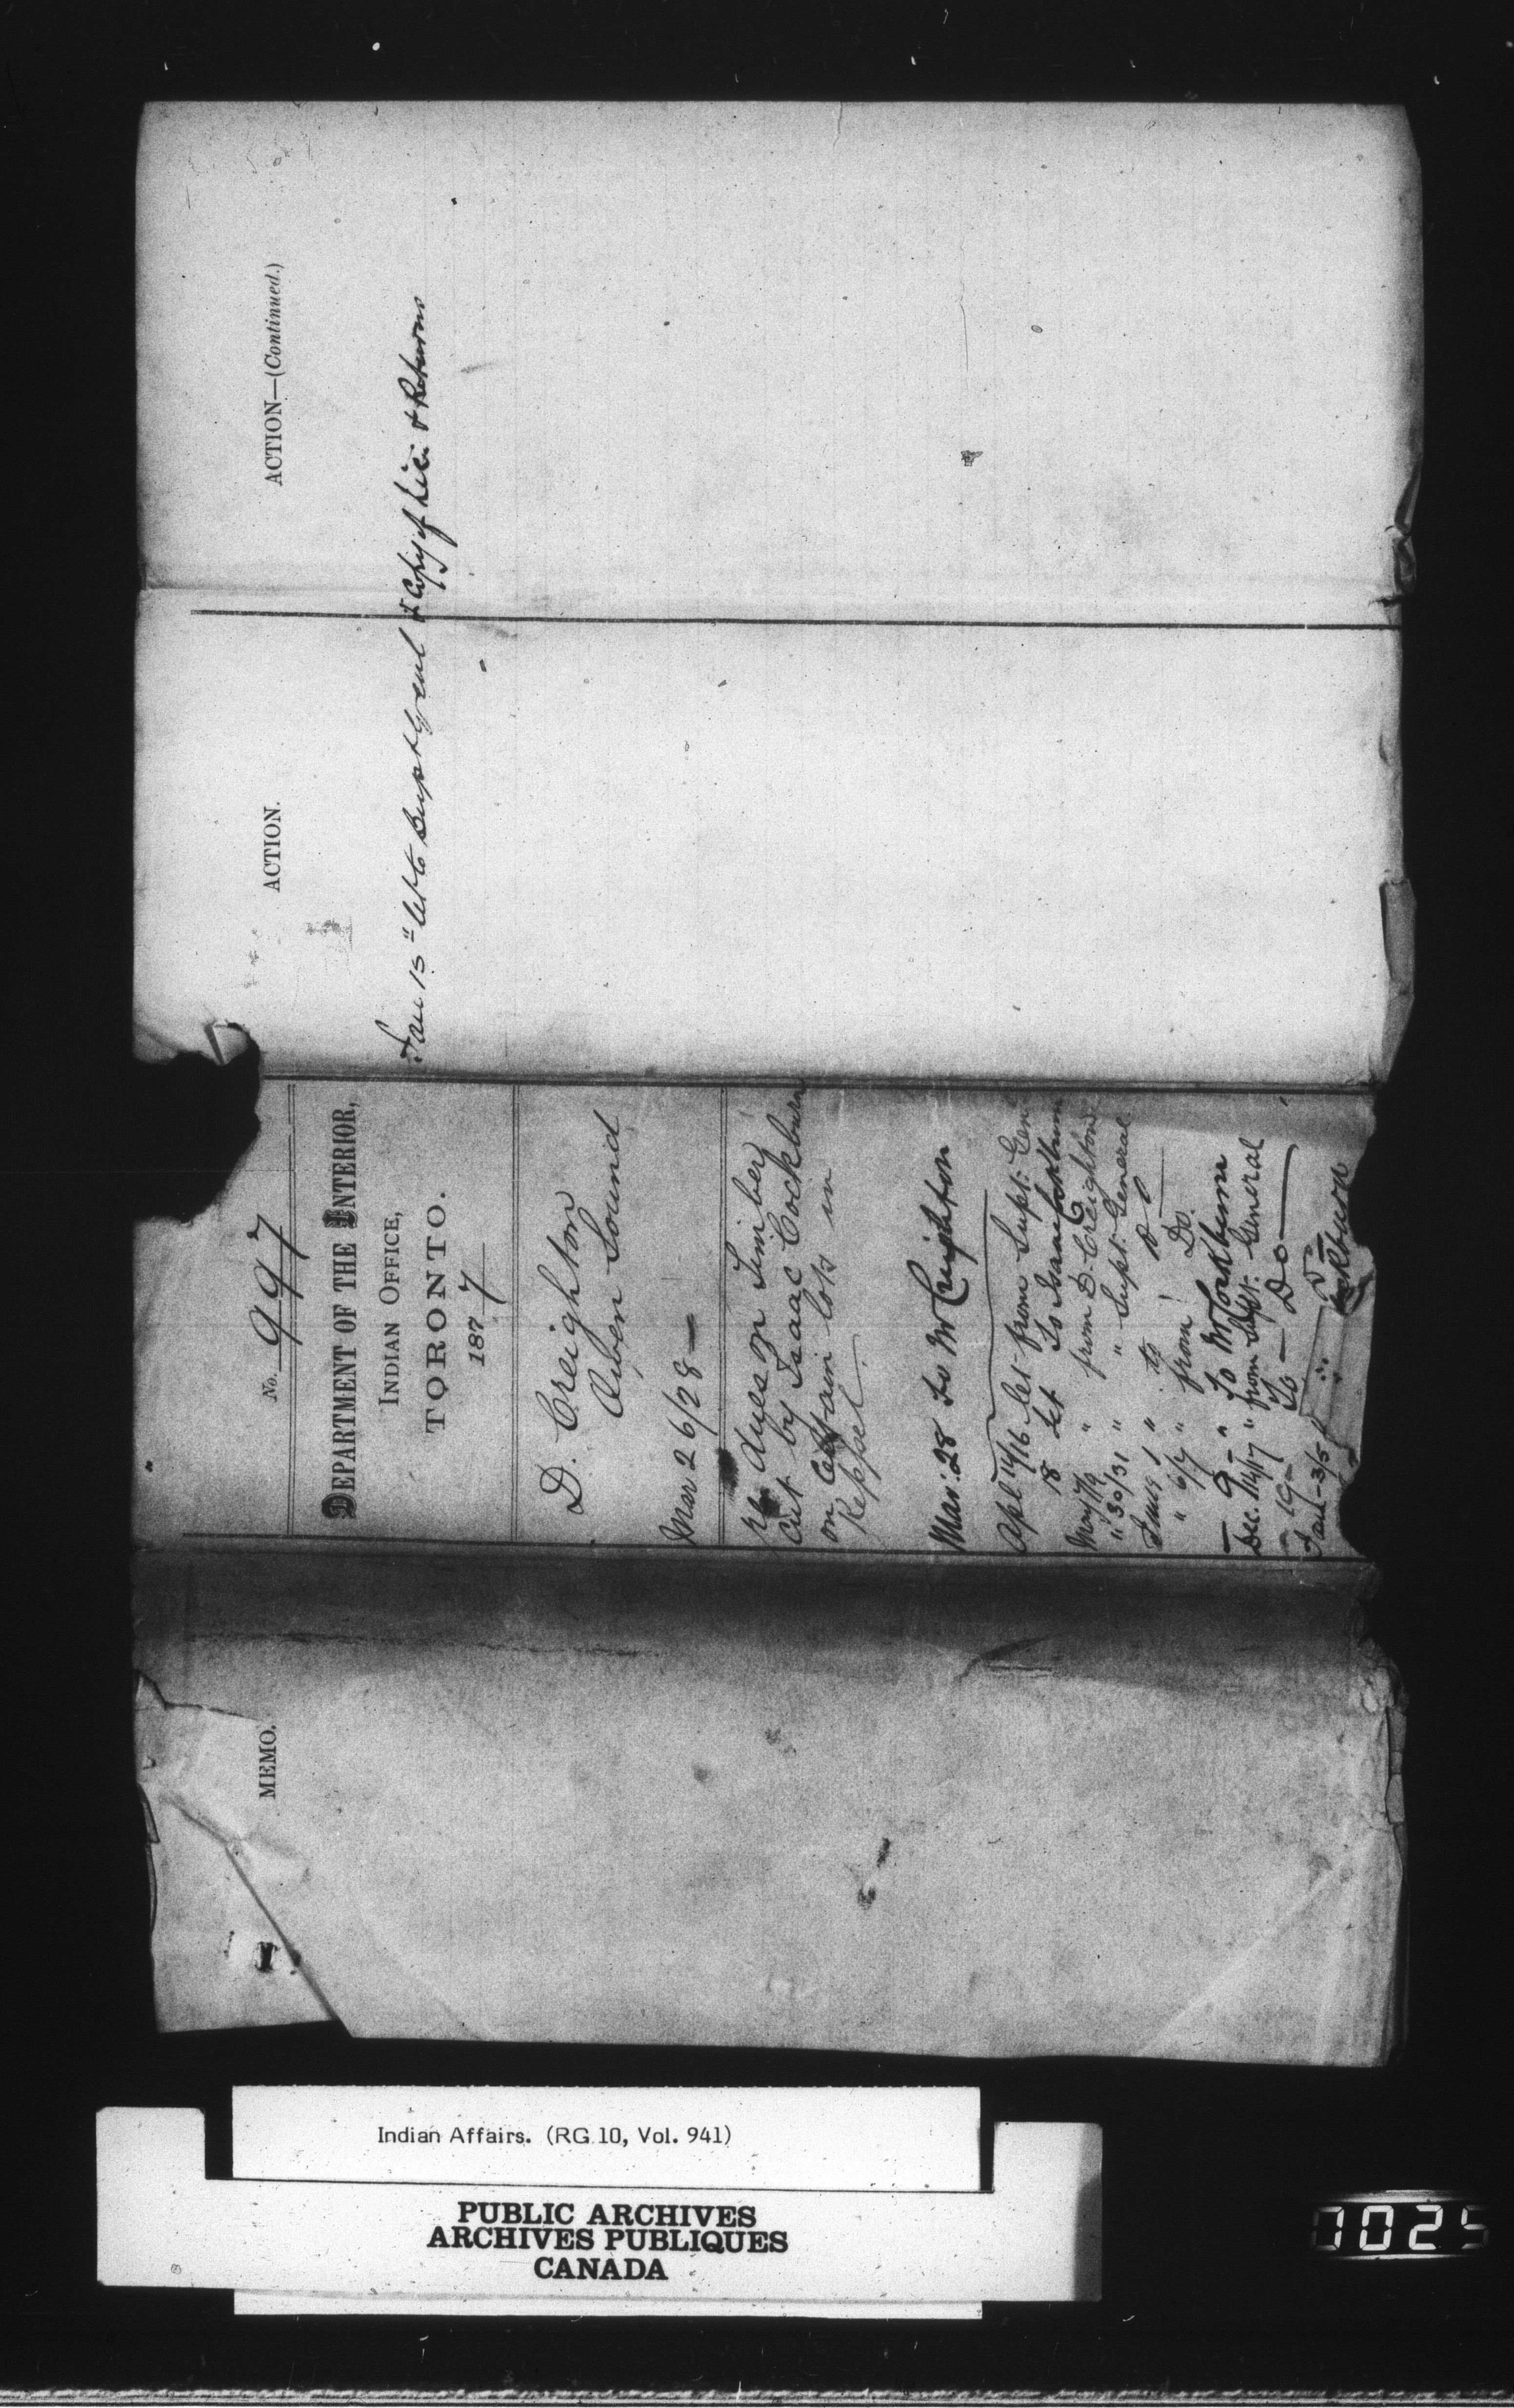 MEMO.
No. 997
DEPARTMENT OF THE INTERIOR,
INDIAN OFFICE,
TORONTO.
1877
D. Creighton
Owen Sound
Mar 26/28 —
re dues on Timber
cut by Isaac Cockburn
on certain lots in
Keppel
Mar: 28 to Mr Creighton
Apl 14/16 let from Supt. Genl
18 let to Isaac Cockburn
May 7/9 " from D. Creighton
" 30/31 " " Supt. General
June 1 " to do
" 6/7 " from Do.
— 9 — " to Mr Cockburn
Dec. 14/17 " from Supt. General
— 19 — to — Do —
Jan — 3/5 "
Cockburn
ACTION.
Jan 15 " let to Supt Genl & Copy of Lic: & Returns
ACTION—(Continued.)
Indian Affairs. (RG 10, Vol. 941)
PUBLIC ARCHIVES
ARCHIVES PUBLIQUES
CANADA
0025